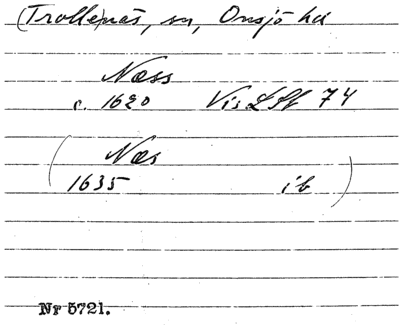 (Trolle)näs, sn, Onsjö hd
Næss
c. 1620 Vis LSt 74
(Næs
1635 ib)
Nr 5721.